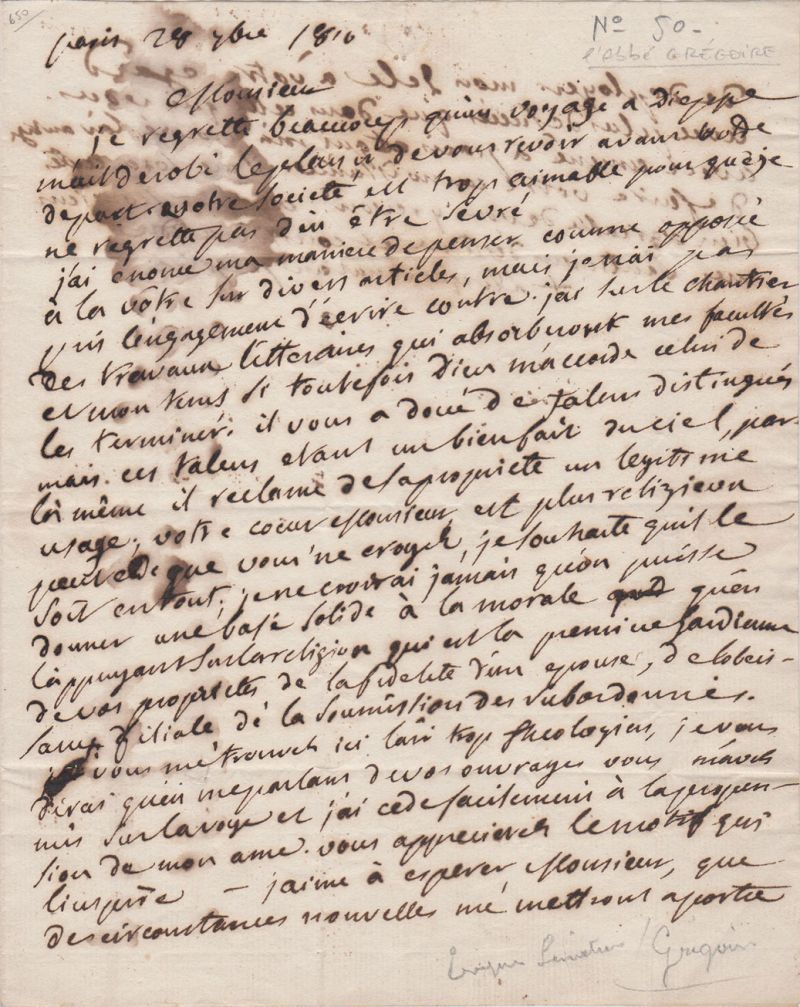 650
N° 50-
l'abbé GRÉGOIRE
paris 28 7bre 1810
Monsieur
je regrette beaucoup qu'un voyage a Dieppe
m'ait derobé le plaisir de vous revoir avant votre
depart. votre société est trop aimable pour que je
ne regrette pas d'en être sévré
j'ai énoncé ma maniere de penser comme opposée
à la vôtre sur divers articles, mais je n'ai pas
pris l'engagement d'écrire contre. j'ai sur le chantier
des travaux litteraires qui absorberont mes facultés
et mon tems si toutefois Dieu m'accorde celui de
les terminer. il vous a doué de talens distingués
mais ces talens etant un bienfait du ciel, par
là même il reclame de sa propriete un legitime
usage; votre coeur Monsieur, est plus religieux
peut etre que vous ne croyez, je souhaite qu'il le
soit en tout; je ne croirai jamais qu'on puisse
donner une base solide à la morale qu'en
l'appuyant sur la religion qui est la premiere gardienne
de vos proprietés de la fidelité d'une epouse, de l'obeis-
sance filiale de la soumission des subordonnés.
si vous me trouvez ici l'air trop theologien, je vous
dirai qu'en me parlant de vos ouvrages vous m'avez
mis sur la voye et j'ai cédé facilement à la propen-
sion de mon ame. vous apprecierez le motif qui
l'inspire — j'aime à esperer Monsieur, que
des circonstances nouvelles me mettront a portée
Grégoire